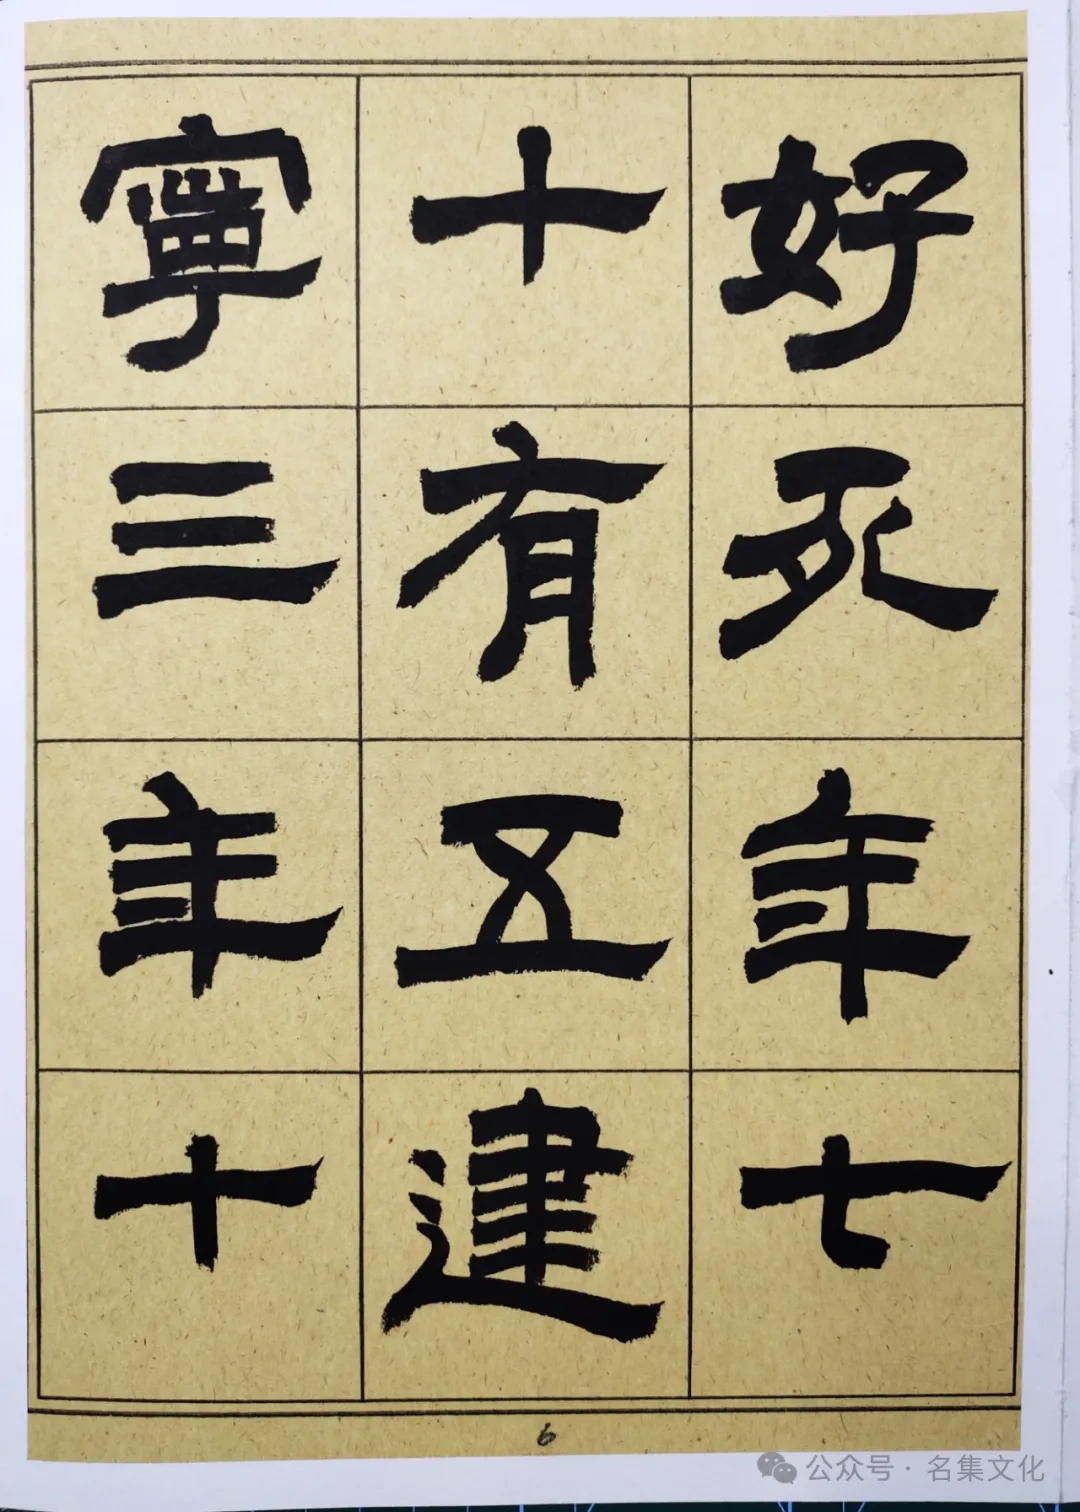 好死年七
十有五建
寧三年十
6
公众号·名集文化